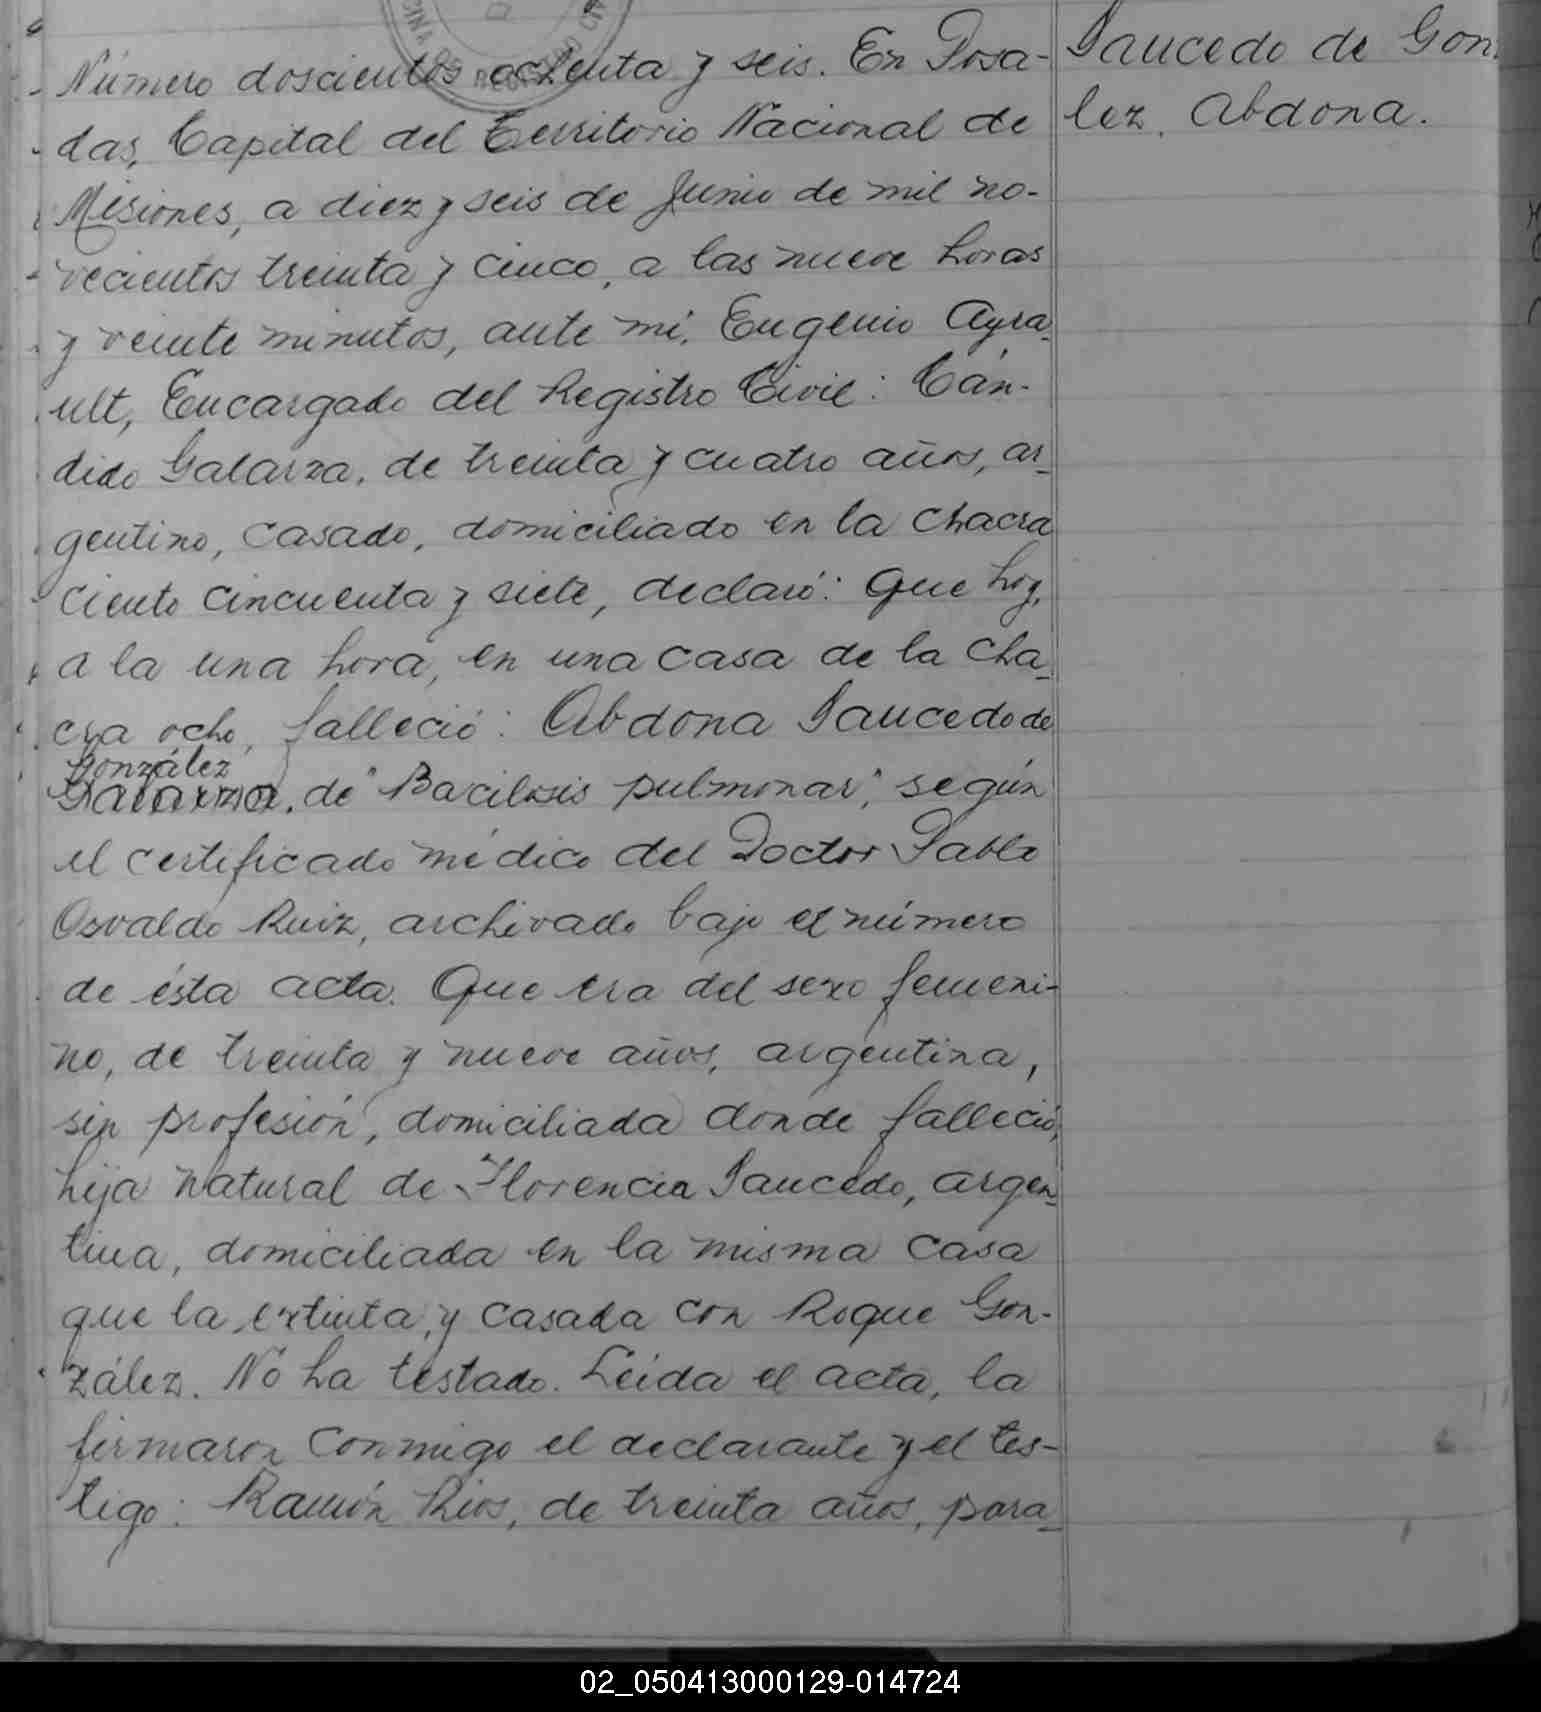 Número doscientos ochenta y seis. En Posa-
das, Capital del Territorio Nacional de
Misiones, a diez y seis de Junio de mil no-
vecientos treinta y cinco, a las nueve horas
y veinte minutos, ante mí, Eugenio Ayra-
ult, Encargado del Registro Civil: Cán-
dido Galarza, de treinta y cuatro años, ar-
gentino, casado, domiciliado en la chacra
ciento cincuenta y siete, declaró: Que hoy,
a la una hora, en una casa de la cha-
cra ocho, falleció: Abdona Saucedo de
González
Galarza, de "Bacilosis pulmonar", según
el certificado médico del Doctor Pablo
Osvaldo Ruiz, archivado bajo el número
de ésta acta. Que era del sexo femeni-
no, de treinta y nueve años, argentina,
sin profesión, domiciliada donde falleció,
hija natural de Florencia Saucedo, argen-
tina, domiciliada en la misma casa
que la extinta, y casada con Roque Gon-
zález. No ha testado. Leída el acta, la
firmaron conmigo el declarante y el tes-
tigo: Ramón Ríos, de treinta años, para-
Saucedo de Gon
lez, Abdona.
02_050413000129-014724